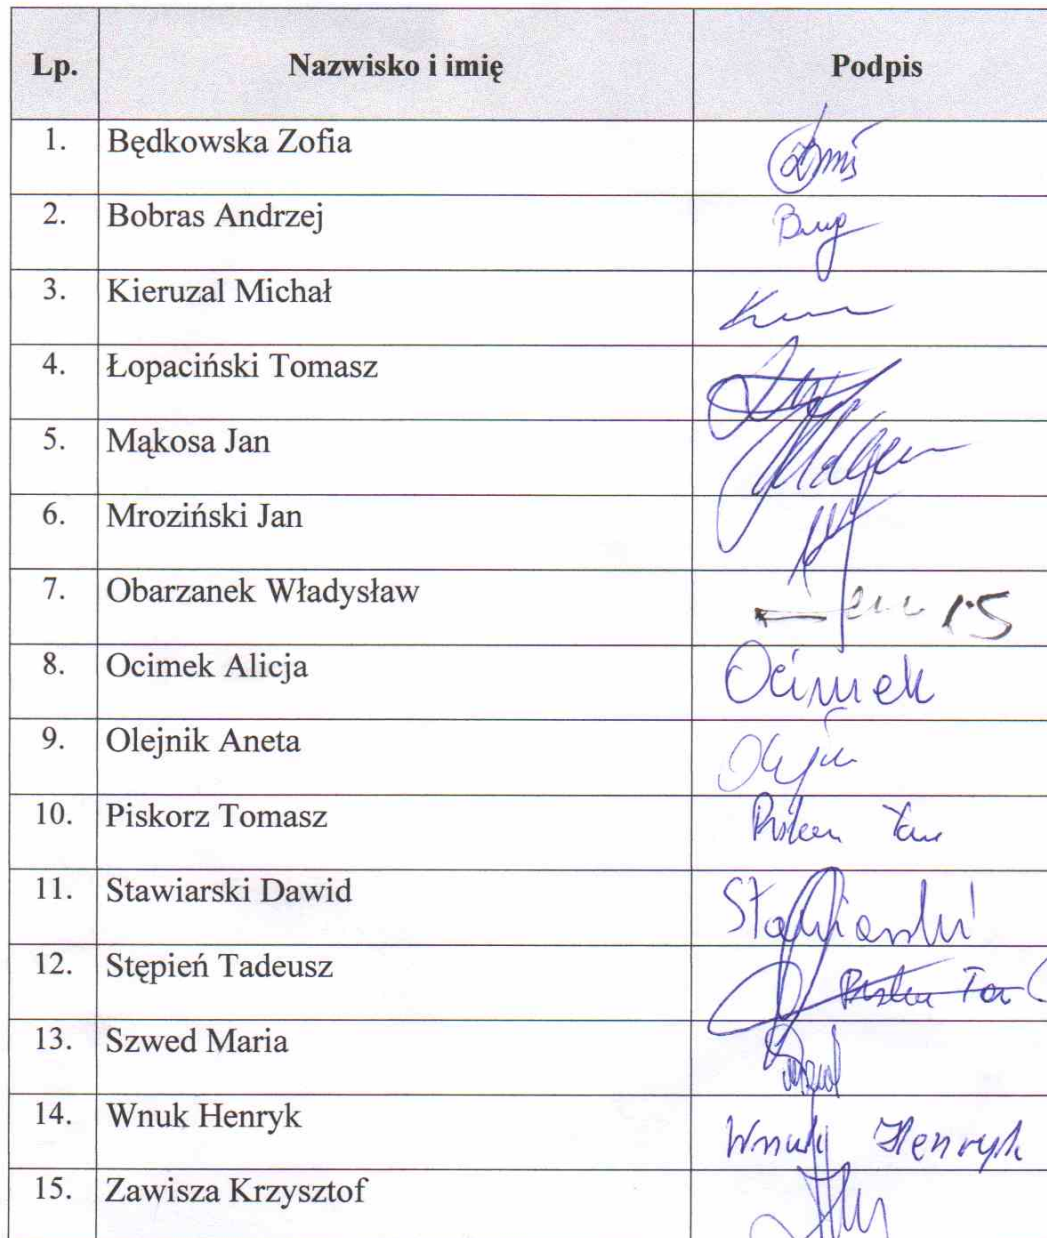 Lp. Nazwisko i imię Podpis
1. Będkowska Zofia
2. Bobras Andrzej
3. Kieruzal Michał
4. Łopaciński Tomasz
5. Mąkosa Jan
6. Mroziński Jan
7. Obarzanek Władysław
8. Ocimek Alicja Ocimek
9. Olejnik Aneta
10. Piskorz Tomasz
11. Stawiarski Dawid Stawiarski
12. Stępień Tadeusz
13. Szwed Maria
14. Wnuk Henryk Wnuk Henryk
15. Zawisza Krzysztof